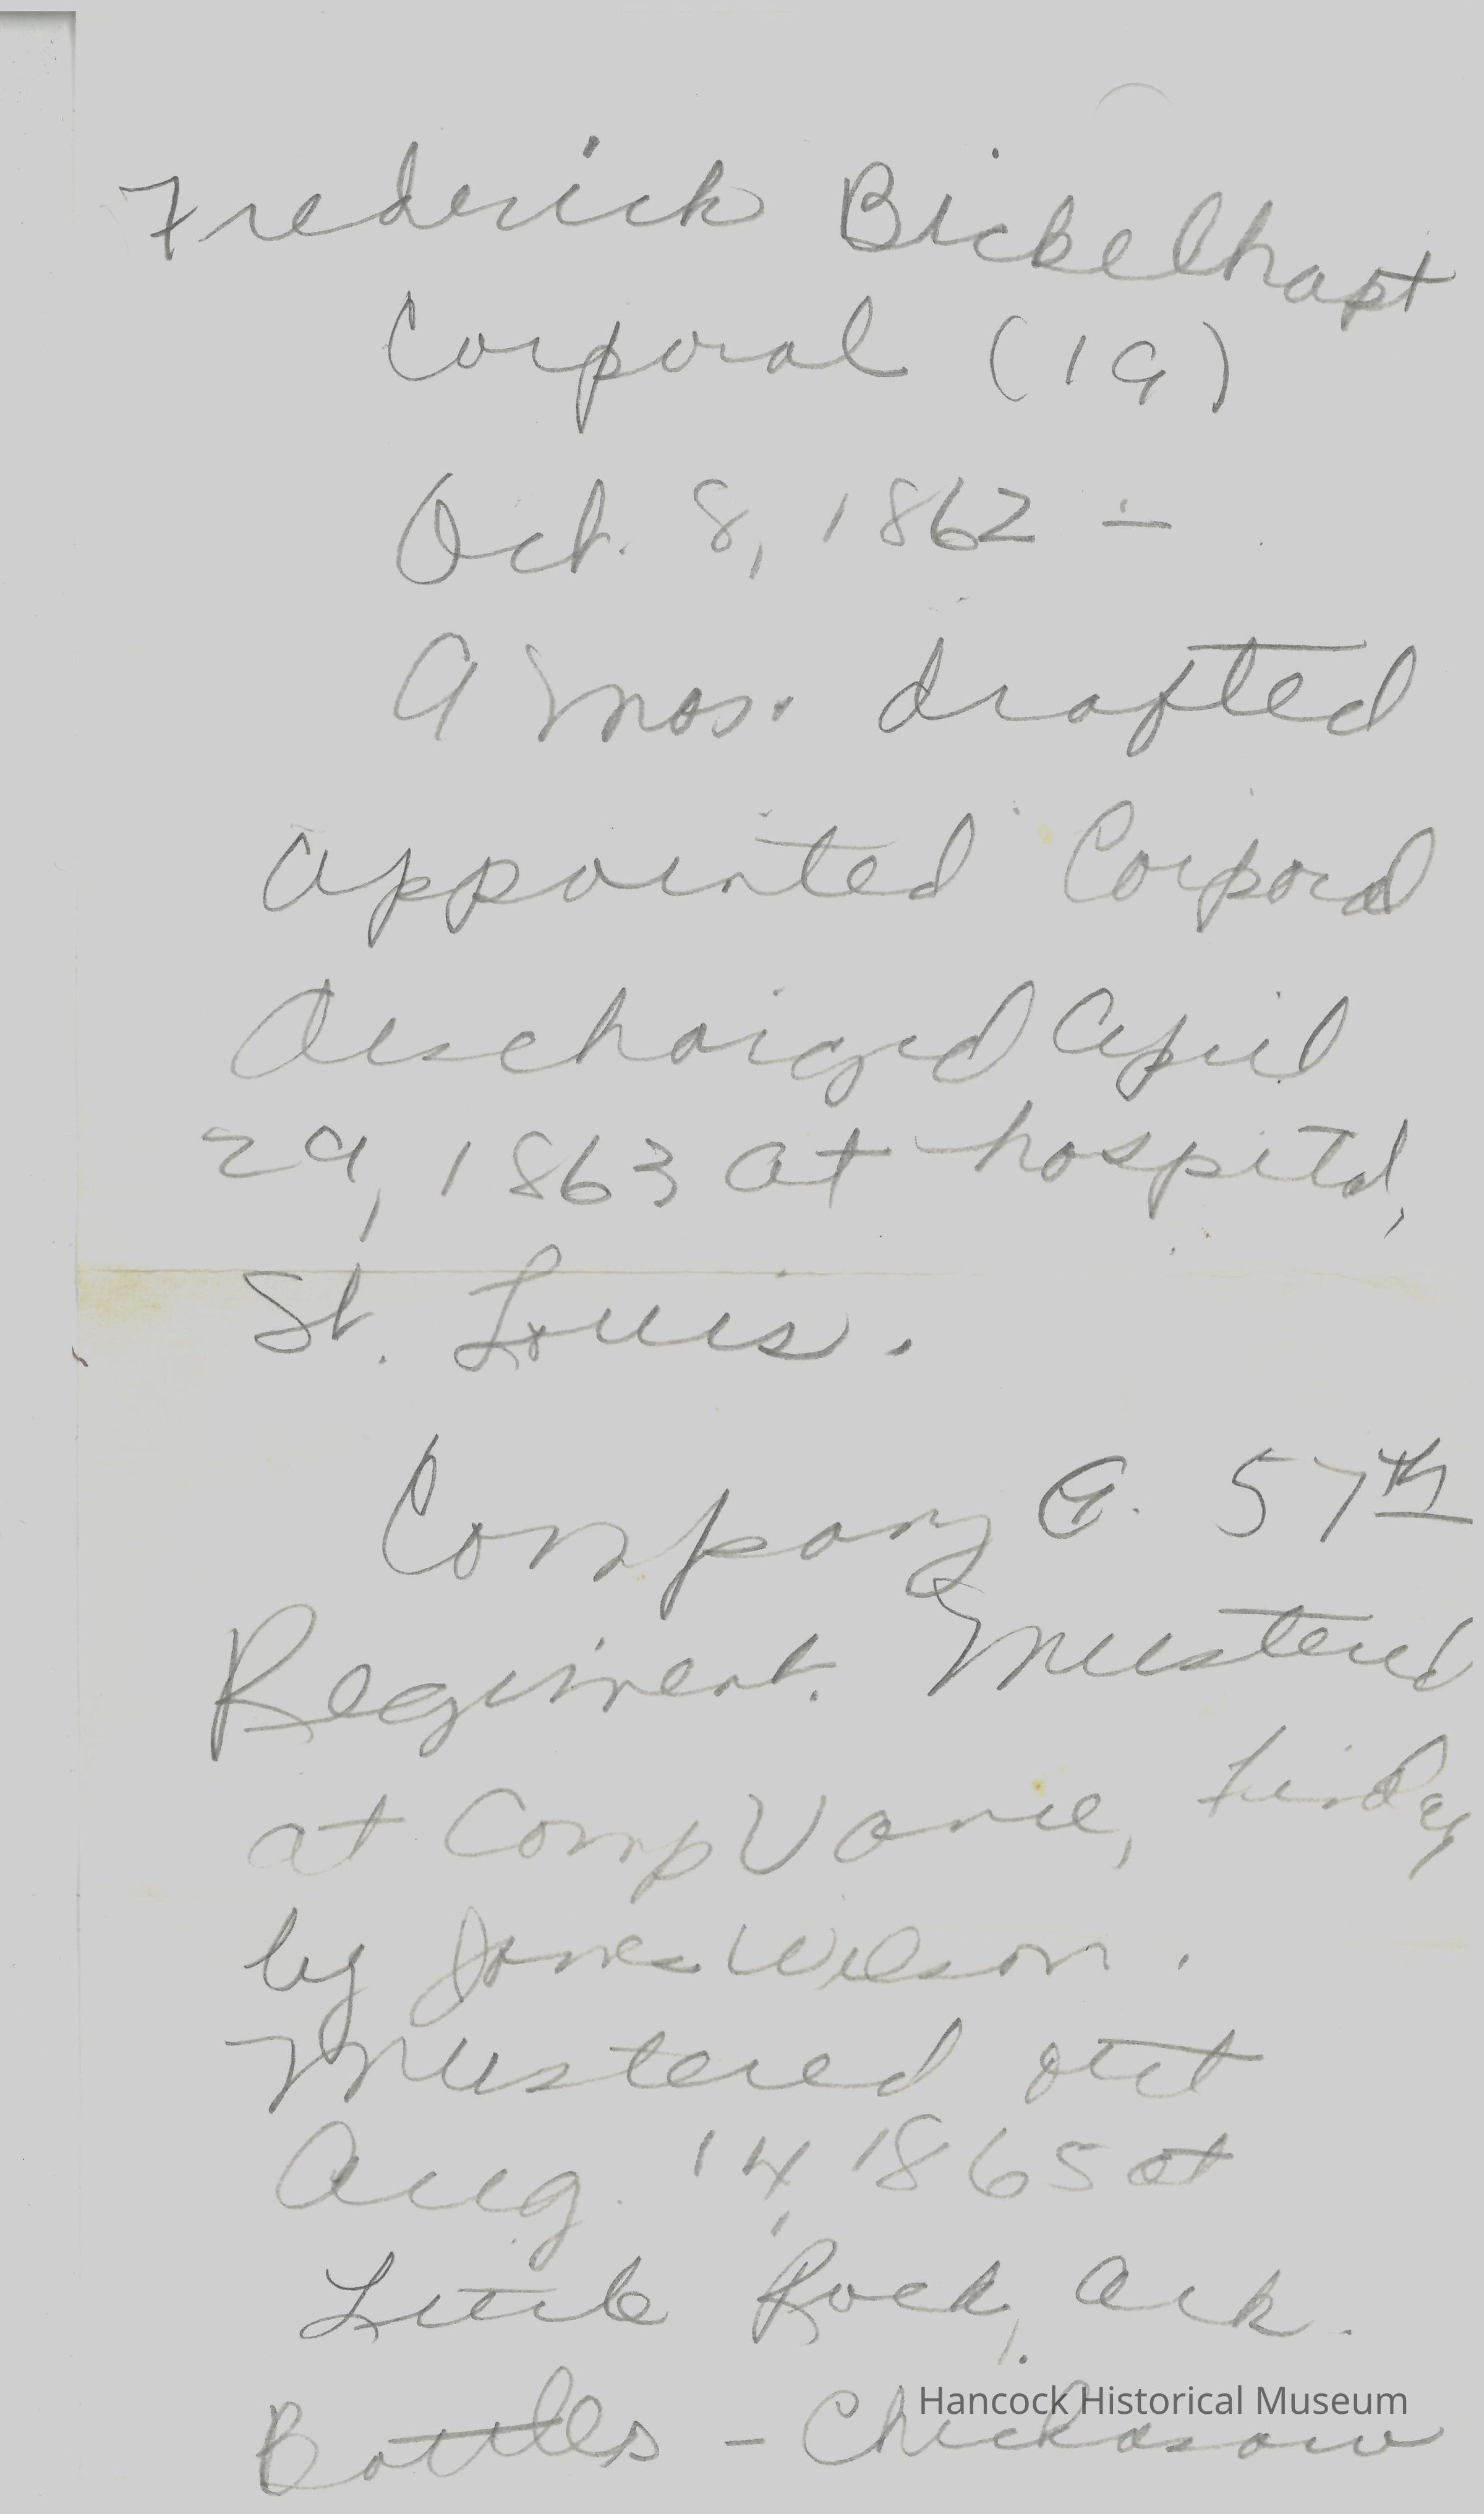 Frederick Bickelhapt
Corporal (19)
Oct. 8, 1862 -
9 mos. drafted
appointed Corporal
discharged April
29, 1863 at hospital,
St. Louis.
Company G. 57th
Regiment. Mustered
at Camp Vance, Finday
by James Wilson.
Mustered out
Aug. 14, 1865 at
Little Rock, Ark.
Hancock Historical Museum
Battles - Chickasaw